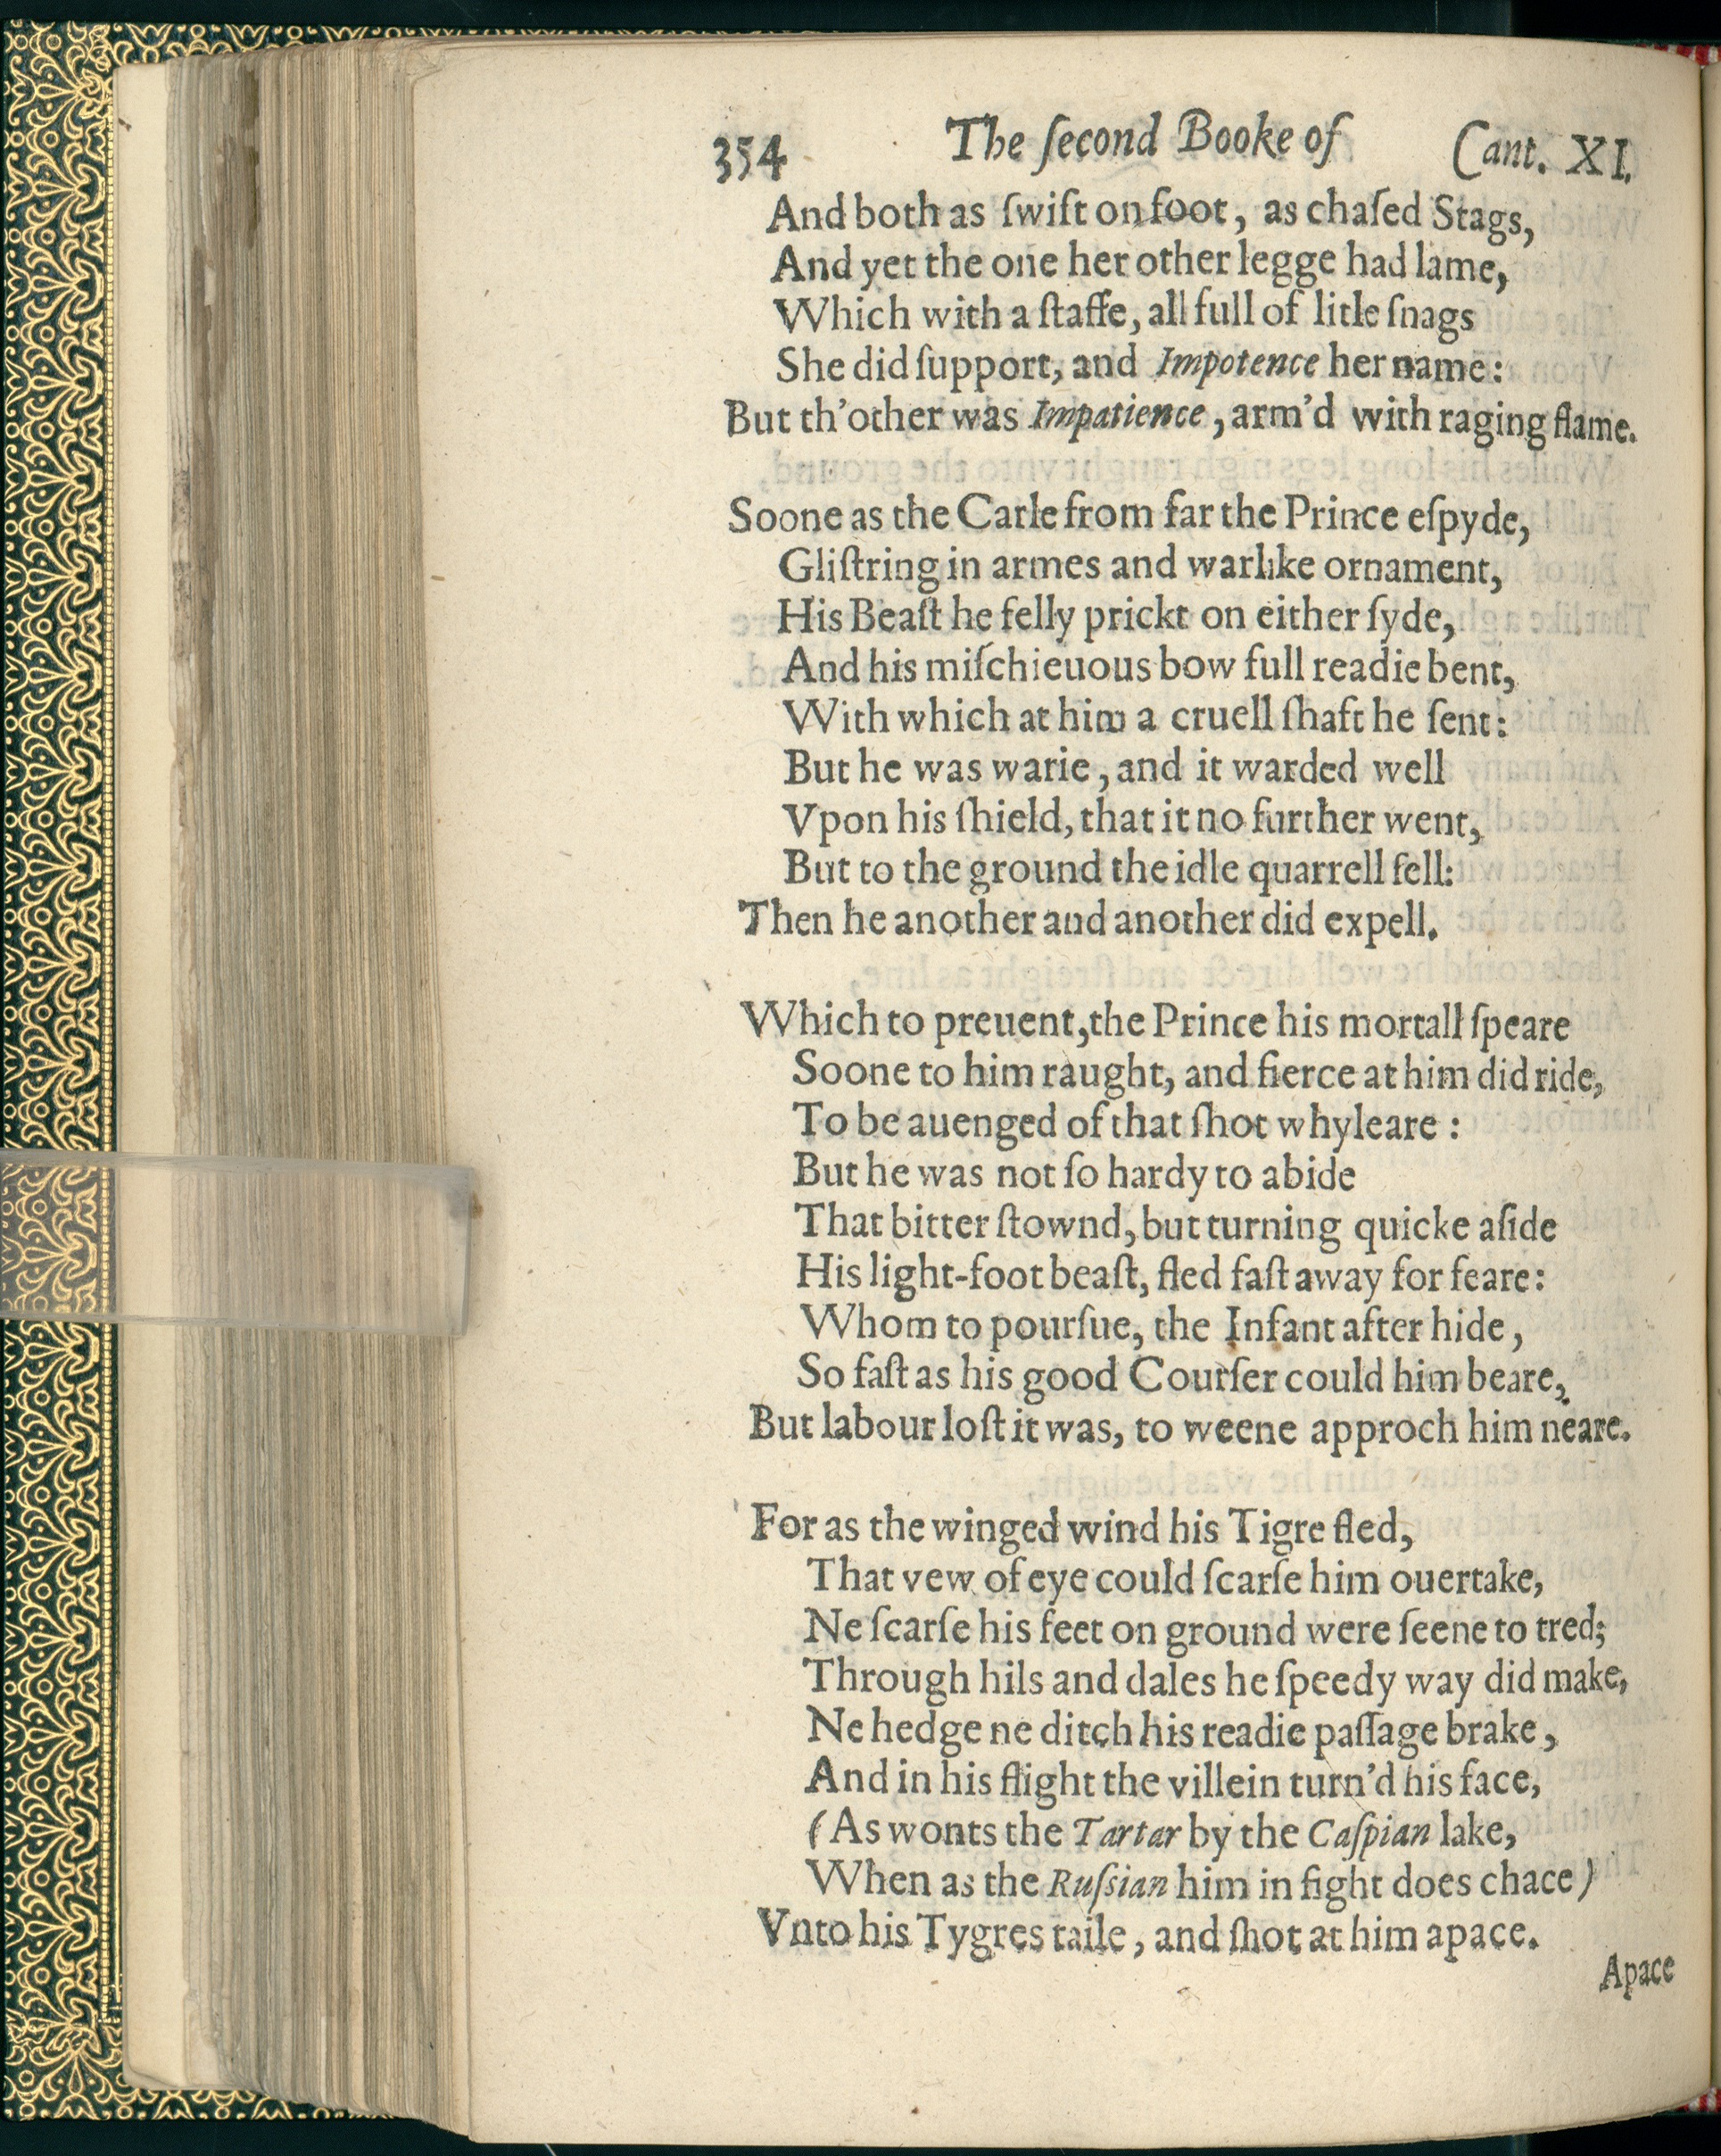 354 The ſecond Booke of Cant. XI.
And both as ſwift on foot, as chaſed Stags,
And yet the one her other legge had lame,
Which with a ſtaffe, all full of litle ſnags
She did ſupport, and Impotence her name:
But th'other was Impatience, arm'd with raging flame.
Soone as the Carle from far the Prince eſpyde,
Gliſtring in armes and warlike ornament,
His Beaſt he felly prickt on either ſyde,
And his miſchieuous bow full readie bent,
With which at him a cruell ſhaft he ſent:
But he was warie, and it warded well
Vpon his ſhield, that it no further went,
But to the ground the idle quarrell fell:
Then he another and another did expell.
Which to preuent, the Prince his mortall ſpeare
Soone to him raught, and fierce at him did ride,
To be auenged of that ſhot whyleare:
But he was not ſo hardy to abide
That bitter ſtownd, but turning quicke aſide
His light-foot beaſt, fled faſt away for feare:
Whom to pourſue, the Infant after hide,
So faſt as his good Courſer could him beare,
But labour loſt it was, to weene approch him neare.
For as the winged wind his Tigre fled,
That vew of eye could ſcarſe him ouertake,
Ne ſcarſe his feet on ground were ſeene to tred;
Through hils and dales he ſpeedy way did make,
Ne hedge ne ditch his readie paſſage brake,
And in his flight the villein turn'd his face,
(As wonts the Tartar by the Caſpian lake,
When as the Ruſsian him in fight does chace)
Vnto his Tygres taile, and ſhot at him apace.
Apace